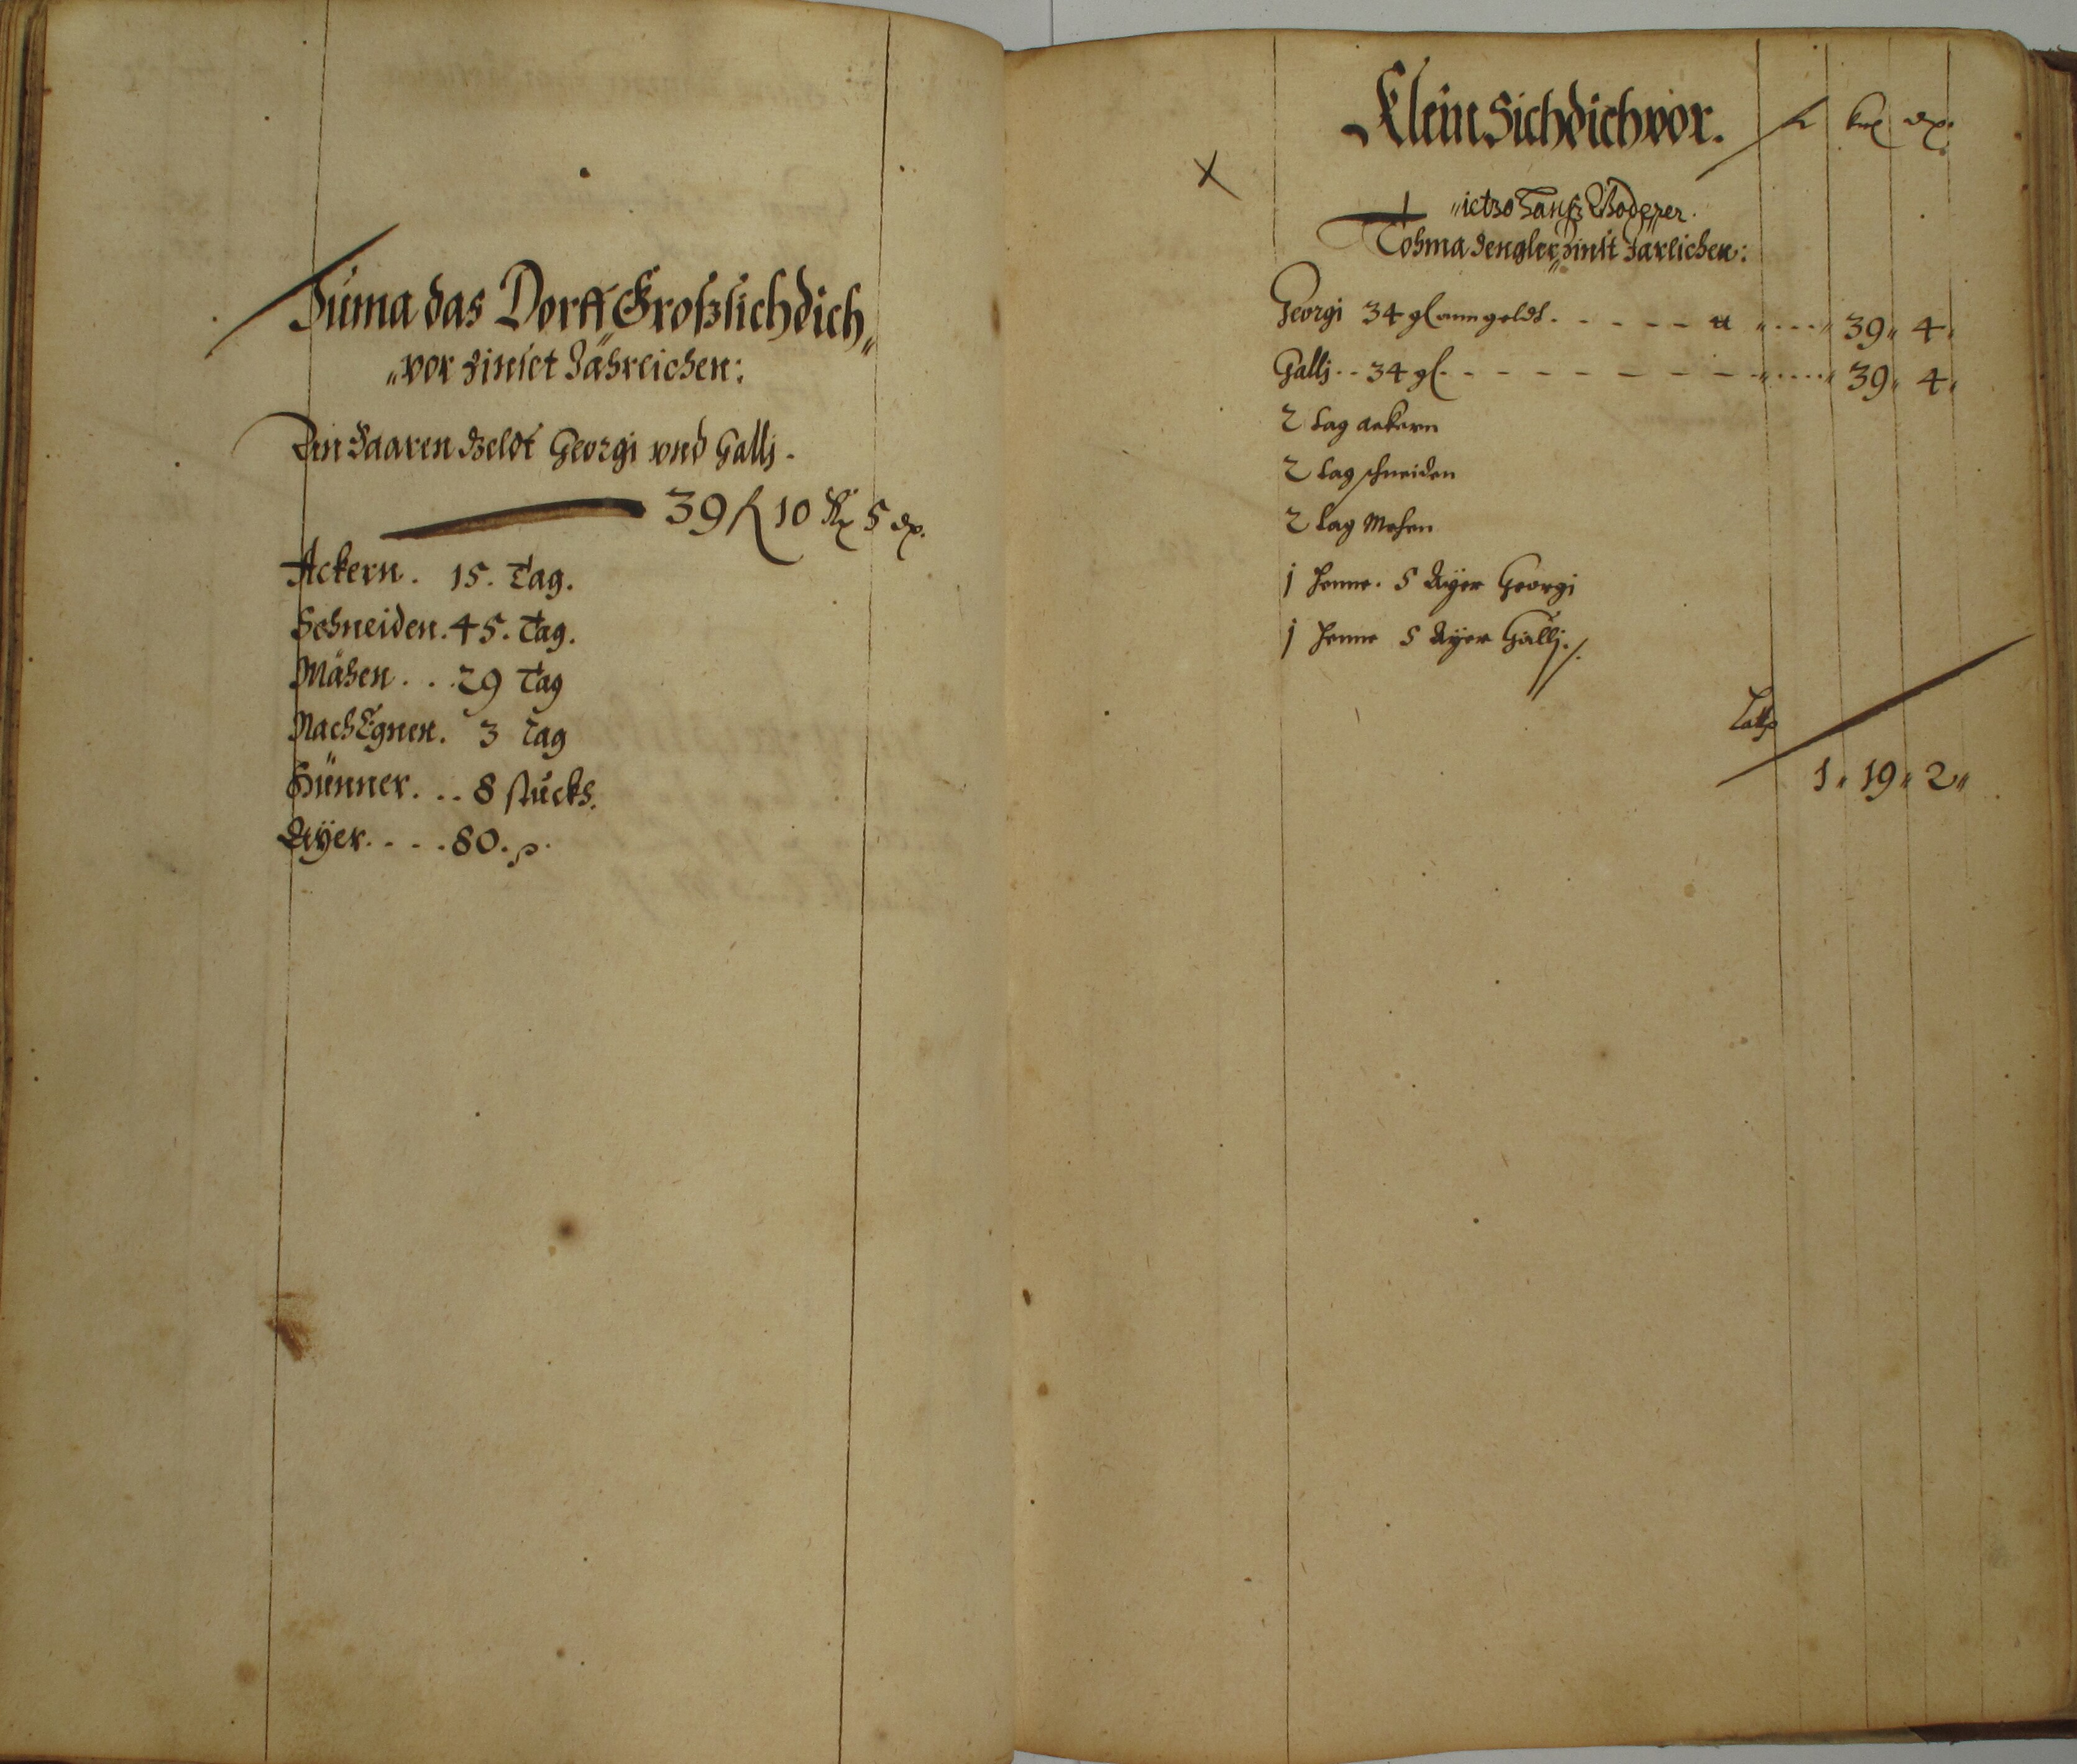 Suma das Dorff Großsichdich„
„vor Zinset Jährlichen:
An Paaren Geldt Georgi vnd Gallj.
39 fl 10 Kr 5 dn.
Ackern. 15. Tag.
Schneiden. 45. Tag.
Mähen . . . 29 Tag
Hünner. . . 8 stucks.
Ayer. . . . 80. p.
Klein Sichdichvor. fl krl dn.
x
„ietzo Hanß Boderer.
Tohma Dengler Zinst Jarlichen:
Georgi 34 gl anngeldt. - - - - - „ . . . . „ 39„ 4„
Gallj . . 34 gl. - - - - - - - „ . . . . „ 39„ 4„
2 tag ackern
2 tag schneiden
2 tag Mehen
1 henne. 5 Ayer Georgi
1 henne 5 Ayer Gallj./.
Latus
1„ 19„ 2„